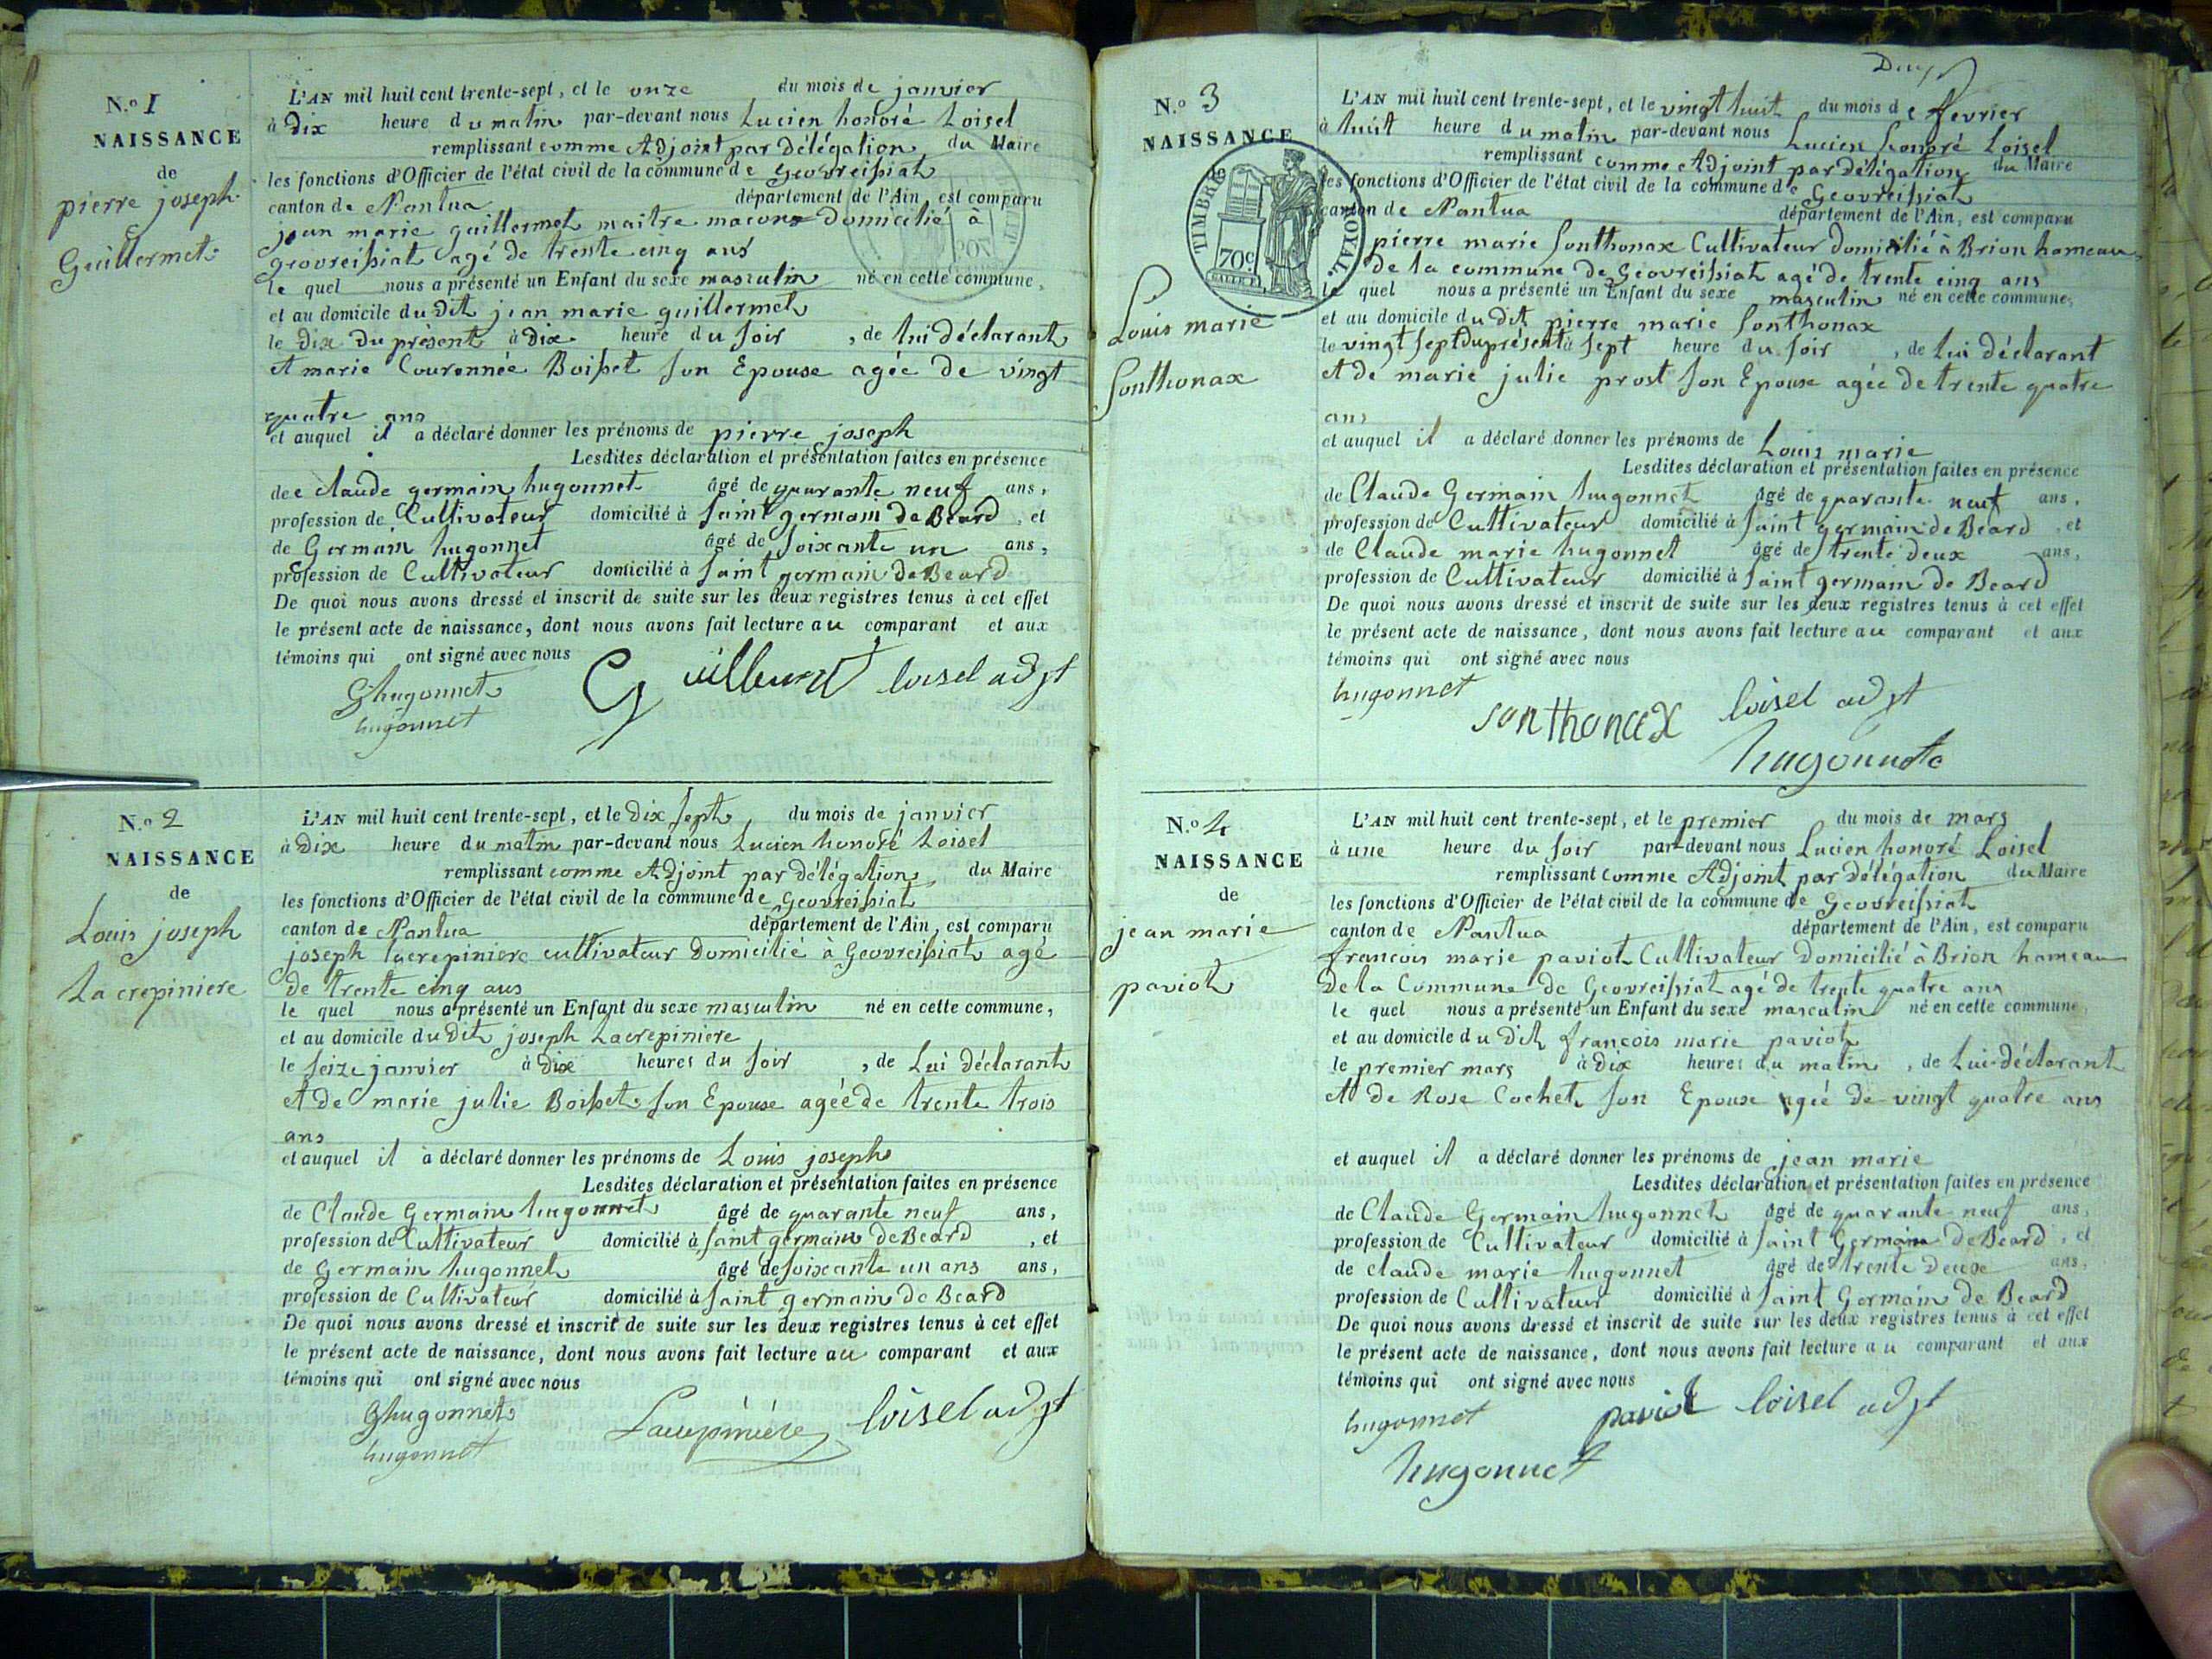 N.o 1
NAISSANCE
de
pierre joseph
Guillermet
L'AN mil huit cent trente-sept, et le onze du mois de janvier
à Dix heure du matin par-devant nous Lucien honoré Loisel
remplissant comme Adjoint par Délégation du Maire
les fonctions d'Officier de l'état civil de la commune de Geovreissiat
canton de Nantua département de l'Ain, est comparu
jean marie guillermet maitre macon Domicilié à
geovreissiat agé de trente cinq ans
le quel nous a présenté un Enfant du sexe masculin né en cette commune,
et au domicile du Dit jean marie guillermet
le Dix Du présent à Dix heure du soir, de lui déclarant
et marie Couronnée Boisset son Epouse agée de vingt
quatre ans
et auquel il a déclaré donner les prénoms de pierre joseph
Lesdites déclaration et présentation faites en présence
dee claude germain hugonnet âgé de quarante neuf ans,
profession de Cultivateur domicilié à saint germain De Beard, et
de Germain hugonnet âgé de soixante un ans,
profession de Cultivateur domicilié à saint germain De Beard
De quoi nous avons dressé et inscrit de suite sur les deux registres tenus à cet effet
le présent acte de naissance, dont nous avons fait lecture au comparant et aux
témoins qui ont signé avec nous
Ghugonnet Guillermet loisel adjt
hugonnet
N.o 2
NAISSANCE
de
Louis joseph
La crepiniere
L'AN mil huit cent trente-sept, et le Dix sept du mois de janvier
à Dix heure du matin par-devant nous Lucien honoré Loisel
remplissant comme Adjoint par délégation du Maire
les fonctions d'Officier de l'état civil de la commune de Geovreissiat
canton de Nantua département de l'Ain, est comparu
joseph lacrepiniere cultivateur Domicilié à Geovreissiat agé
de trente cinq ans
le quel nous a présenté un Enfant du sexe masculin né en cette commune,
et au domicile du Dit joseph Lacrepiniere
le seize janvier à Dix heures du soir, de Lui déclarant
et de marie julie Boisset son Epouse agéé de trente trois
ans
et auquel il a déclaré donner les prénoms de Louis joseph
Lesdites déclaration et présentation faites en présence
de Claude Germain hugonnet âgé de quarante neuf ans,
profession de Cultivateur domicilié à saint germain De Beard, et
de Germain hugonnet âgé de soixante un ans ans,
profession de Cultivateur domicilié à saint germain De Beard
De quoi nous avons dressé et inscrit de suite sur les deux registres tenus à cet effet
le présent acte de naissance, dont nous avons fait lecture au comparant et aux
témoins qui ont signé avec nous
Ghugonnet loisel adjt
hugonnet
N.o 3
NAISSANCE
TIMBRE ROYAL.
70c
Louis marie
Sonthonax
L'AN mil huit cent trente-sept, et le vingt huit du mois de fevrier
à huit heure du matin par-devant nous Lucien honoré Loisel
remplissant comme Adjoint par délégation du Maire
les fonctions d'Officier de l'état civil de la commune de Geovreissiat
canton de Nantua département de l'Ain, est comparu
pierre marie Sonthonax Cultivateur domicilié à Brion hameau
de la commune de Geovreissiat agé de trente cinq ans
le quel nous a présenté un Enfant du sexe masculin né en cette commune,
et au domicile du Dit pierre marie Sonthonax
le vingt sept Du présent à sept heure du soir, de Lui déclarant
et de marie julie prost son Epouse agée de trente quatre
ans
et auquel il a déclaré donner les prénoms de Louis marie
Lesdites déclaration et présentation faites en présence
de Claude Germain hugonnet âgé de quarante neuf ans,
profession de Cultivateur domicilié à saint germain de Beard, et
de Claude marie hugonnet âgé de trente deux ans,
profession de Cultivateur domicilié à saint germain de Beard
De quoi nous avons dressé et inscrit de suite sur les deux registres tenus à cet effet
le présent acte de naissance, dont nous avons fait lecture au comparant et aux
témoins qui ont signé avec nous
hugonnet sonthonax loisel adjt
N.o 4
NAISSANCE
de
jean marie
paviot
L'AN mil huit cent trente-sept, et le premier du mois de mars
à une heure du soir par-devant nous Lucien honoré Loisel
remplissant comme Adjoint par Délégation du Maire
les fonctions d'Officier de l'état civil de la commune de Geovreissiat
canton de Nantua département de l'Ain, est comparu
francois marie paviot Cultivateur Domicilié à Brion hameau
de la Commune de Geovreissiat agé de trente quatre ans
le quel nous a présenté un Enfant du sexe masculin né en cette commune,
et au domicile du Dit francois marie paviot
le premier mars à Dix heures du matin, de Lui déclarant
et de Rose Cochet son Epouse agée de vingt quatre ans
et auquel il a déclaré donner les prénoms de jean marie
Lesdites déclaration et présentation faites en présence
de Claude Germain hugonnet âgé de quarante neuf ans,
profession de Cultivateur domicilié à saint Germain De Beard, et
de claude marie hugonnet âgé de trente Deux ans,
profession de Cultivateur domicilié à saint Germain De Beard
De quoi nous avons dressé et inscrit de suite sur les deux registres tenus à cet effet
le présent acte de naissance, dont nous avons fait lecture au comparant et aux
témoins qui ont signé avec nous
hugonnet paviot loisel adjt
hugonnet